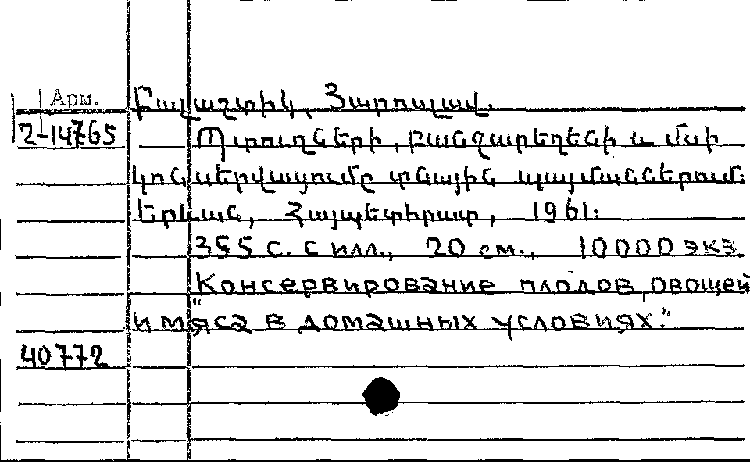 Арм.
Բալաշտիկ, Յարոսլավ.
2-14765
Պտուղների, բանջարեղենի և մսի
կոնսերվացումը տնային պայմաններում:
Երևան, Հայպետհրատ, 1961:
355 с. с илл., 20 см., 10000 экз.
"Консервирование плодов, овощей
и мяса в домашных условиях."
40772